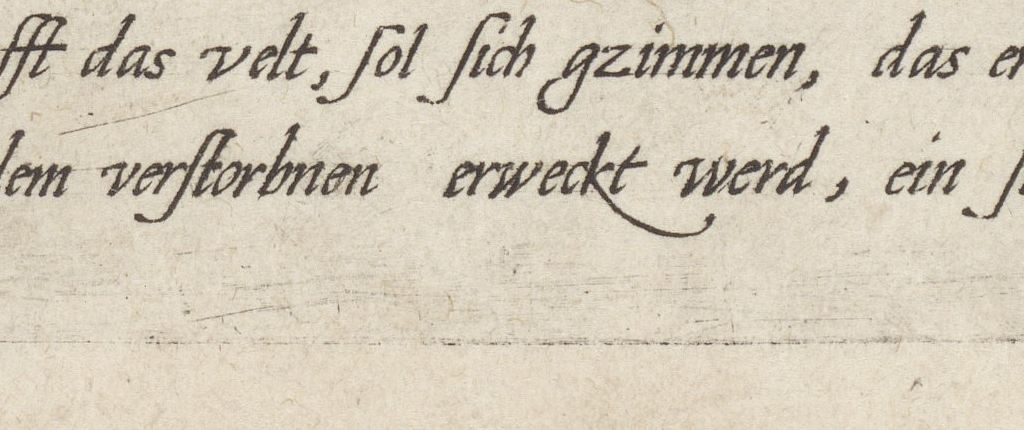 fft das velt, sol sich gzimmen, das er
dem verstorbnen erweckt werd, ein